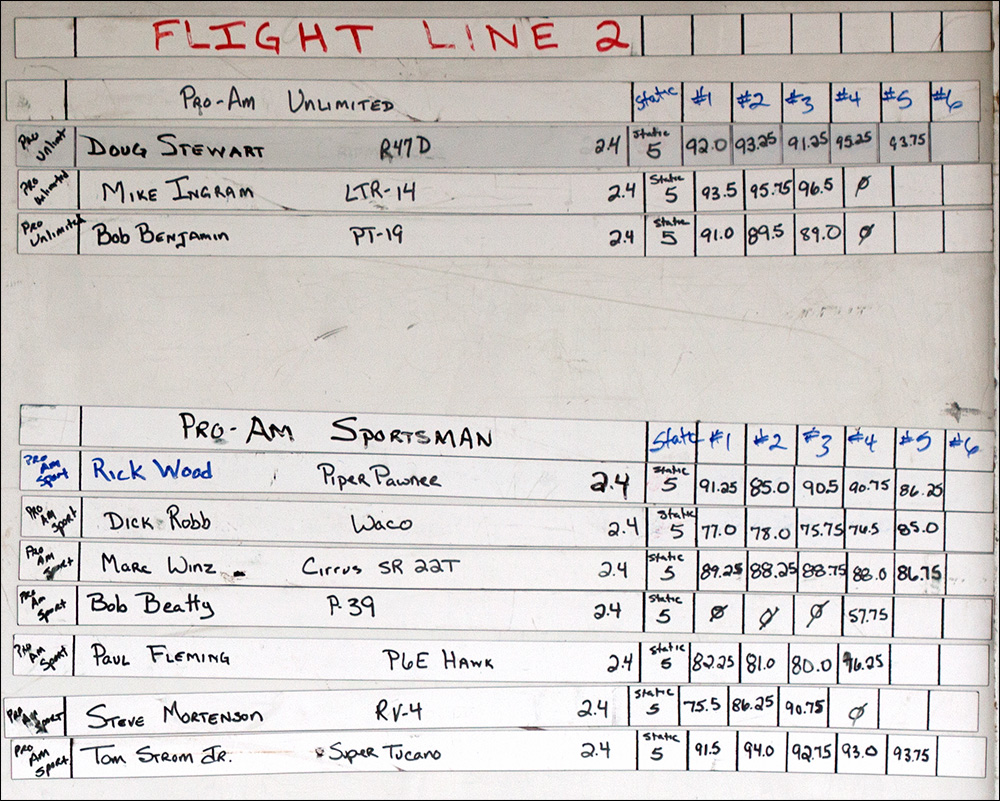 FLIGHT LINE 2
PRO-AM UNLIMITED Static #1 #2 #3 #4 #5 #6
PRO Unlimit DOUG STEWART R47D 2.4 Static 5 92.0 93.25 91.25 95.25 93.75
PRO Unlimited MIKE INGRAM LTR-14 2.4 Static 5 93.5 95.75 96.5 Ø
PRO Unlimited BOB BENJAMIN PT-19 2.4 Static 5 91.0 89.5 89.0 Ø
PRO-AM SPORTSMAN Static #1 #2 #3 #4 #5 #6
PRO AM Sport RICK Wood PIPER PAWNEE 2.4 Static 5 91.25 85.0 90.5 90.75 86.25
PRO AM SPORT DICK ROBB WACO 2.4 Static 5 77.0 78.0 75.75 76.5 85.0
PRO AM Sport MARC WINZ CIRRUS SR 22T 2.4 Static 5 89.25 88.25 88.75 88.0 86.75
PRO AM Sport Bob Beatty P-39 2.4 Static 5 Ø Ø Ø 57.75
PRO AM SPORT PAUL FLEMING P6E HAWK 2.4 Static 5 82.25 81.0 80.0 76.25
PRO AM SPORT STEVE MORTENSON RV-4 2.4 Static 5 75.5 86.25 90.75 Ø
PRO AM SPORT TOM STROM JR. SUPER TUCANO 2.4 Static 5 91.5 94.0 92.75 93.0 93.75